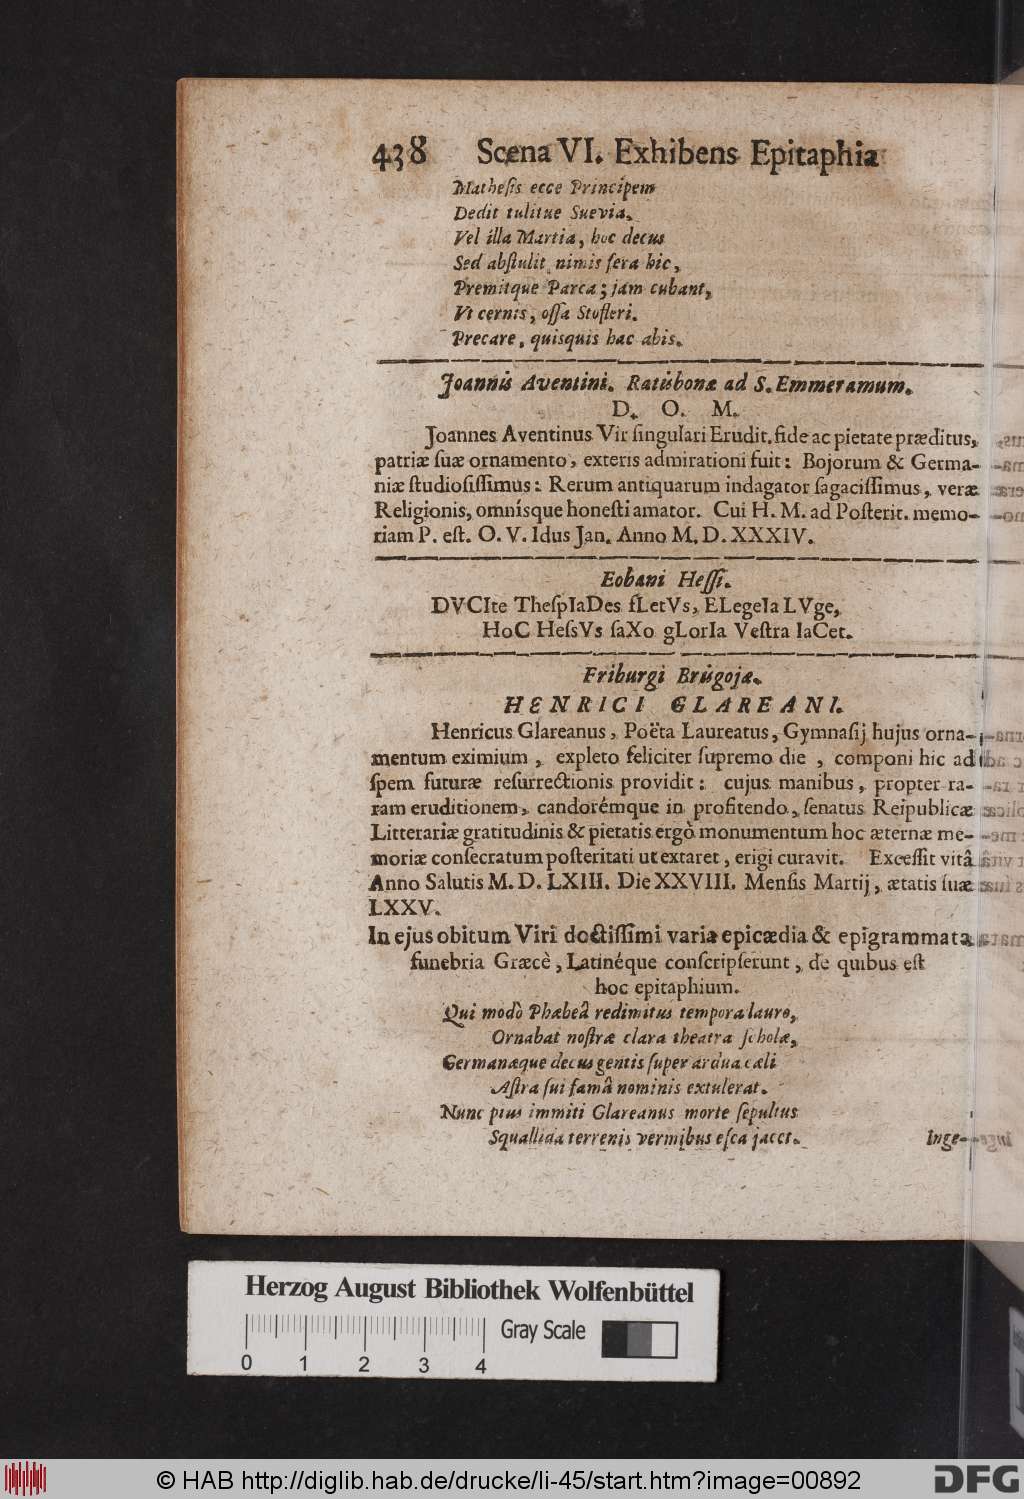 438 Scena VI. Exhibens Epitaphia
Matheſis ecce Principem
Dedit tulitue Suevia.
Vel illa Martia, hoc decus
Sed abſtulit nimis ſera hic,
Premitque Parca; jam cubant,
Vt cernis, oſſa Stofleri.
Precare, quisquis hac abis.
Joannis Aventini. Ratisbonæ ad S. Emmeramum.
D. O. M.
Joannes Aventinus Vir ſingulari Erudit. fide ac pietate præditus,
patriæ ſuæ ornamento, exteris admirationi fuit: Bojorum & Germa-
niæ ſtudioſiſſimus: Rerum antiquarum indagator ſagaciſſimus, veræ
Religionis, omnísque honeſti amator. Cui H. M. ad Poſterit. memo-
riam P. eſt. O. V. Idus Jan. Anno M. D. XXXIV.
Eobani Heſſi.
DVCIte TheſpIaDes fLetVs, ELegeIa LVge,
HoC HeſsVs ſaXo gLorIa Veſtra IaCet.
Friburgi Brisgojæ.
HENRICI GLAREANI.
Henricus Glareanus, Poëta Laureatus, Gymnaſij hujus orna-
mentum eximium, expleto feliciter ſupremo die, componi hic ad
ſpem futuræ reſurrectionis providit: cujus manibus, propter ra-
ram eruditionem, candorémque in profitendo, ſenatus Reipublicæ
Litterariæ gratitudinis & pietatis ergò monumentum hoc æternæ me-
moriæ conſecratum poſteritati ut extaret, erigi curavit. Exceſſit vitâ
Anno Salutis M. D. LXIII. Die XXVIII. Menſis Martij, ætatis ſuæ
LXXV.
In ejus obitum Viri doctiſſimi varia epicædia & epigrammata
funebria Græcè, Latinéque conſcripſerunt, de quibus eſt
hoc epitaphium.
Qui modò Phœbeâ redimitus tempora lauro,
Ornabat noſtræ clara theatra ſcholæ,
Germanæque decus gentis ſuper ardua cæli
Aſtra ſui famâ nominis extulerat.
Nunc pius immiti Glareanus morte ſepultus
Squallida terrenis vermibus eſca jacet.
Inge-
Herzog August Bibliothek Wolfenbüttel
Gray Scale
0 1 2 3 4
© HAB http://diglib.hab.de/drucke/li-45/start.htm?image=00892
DFG